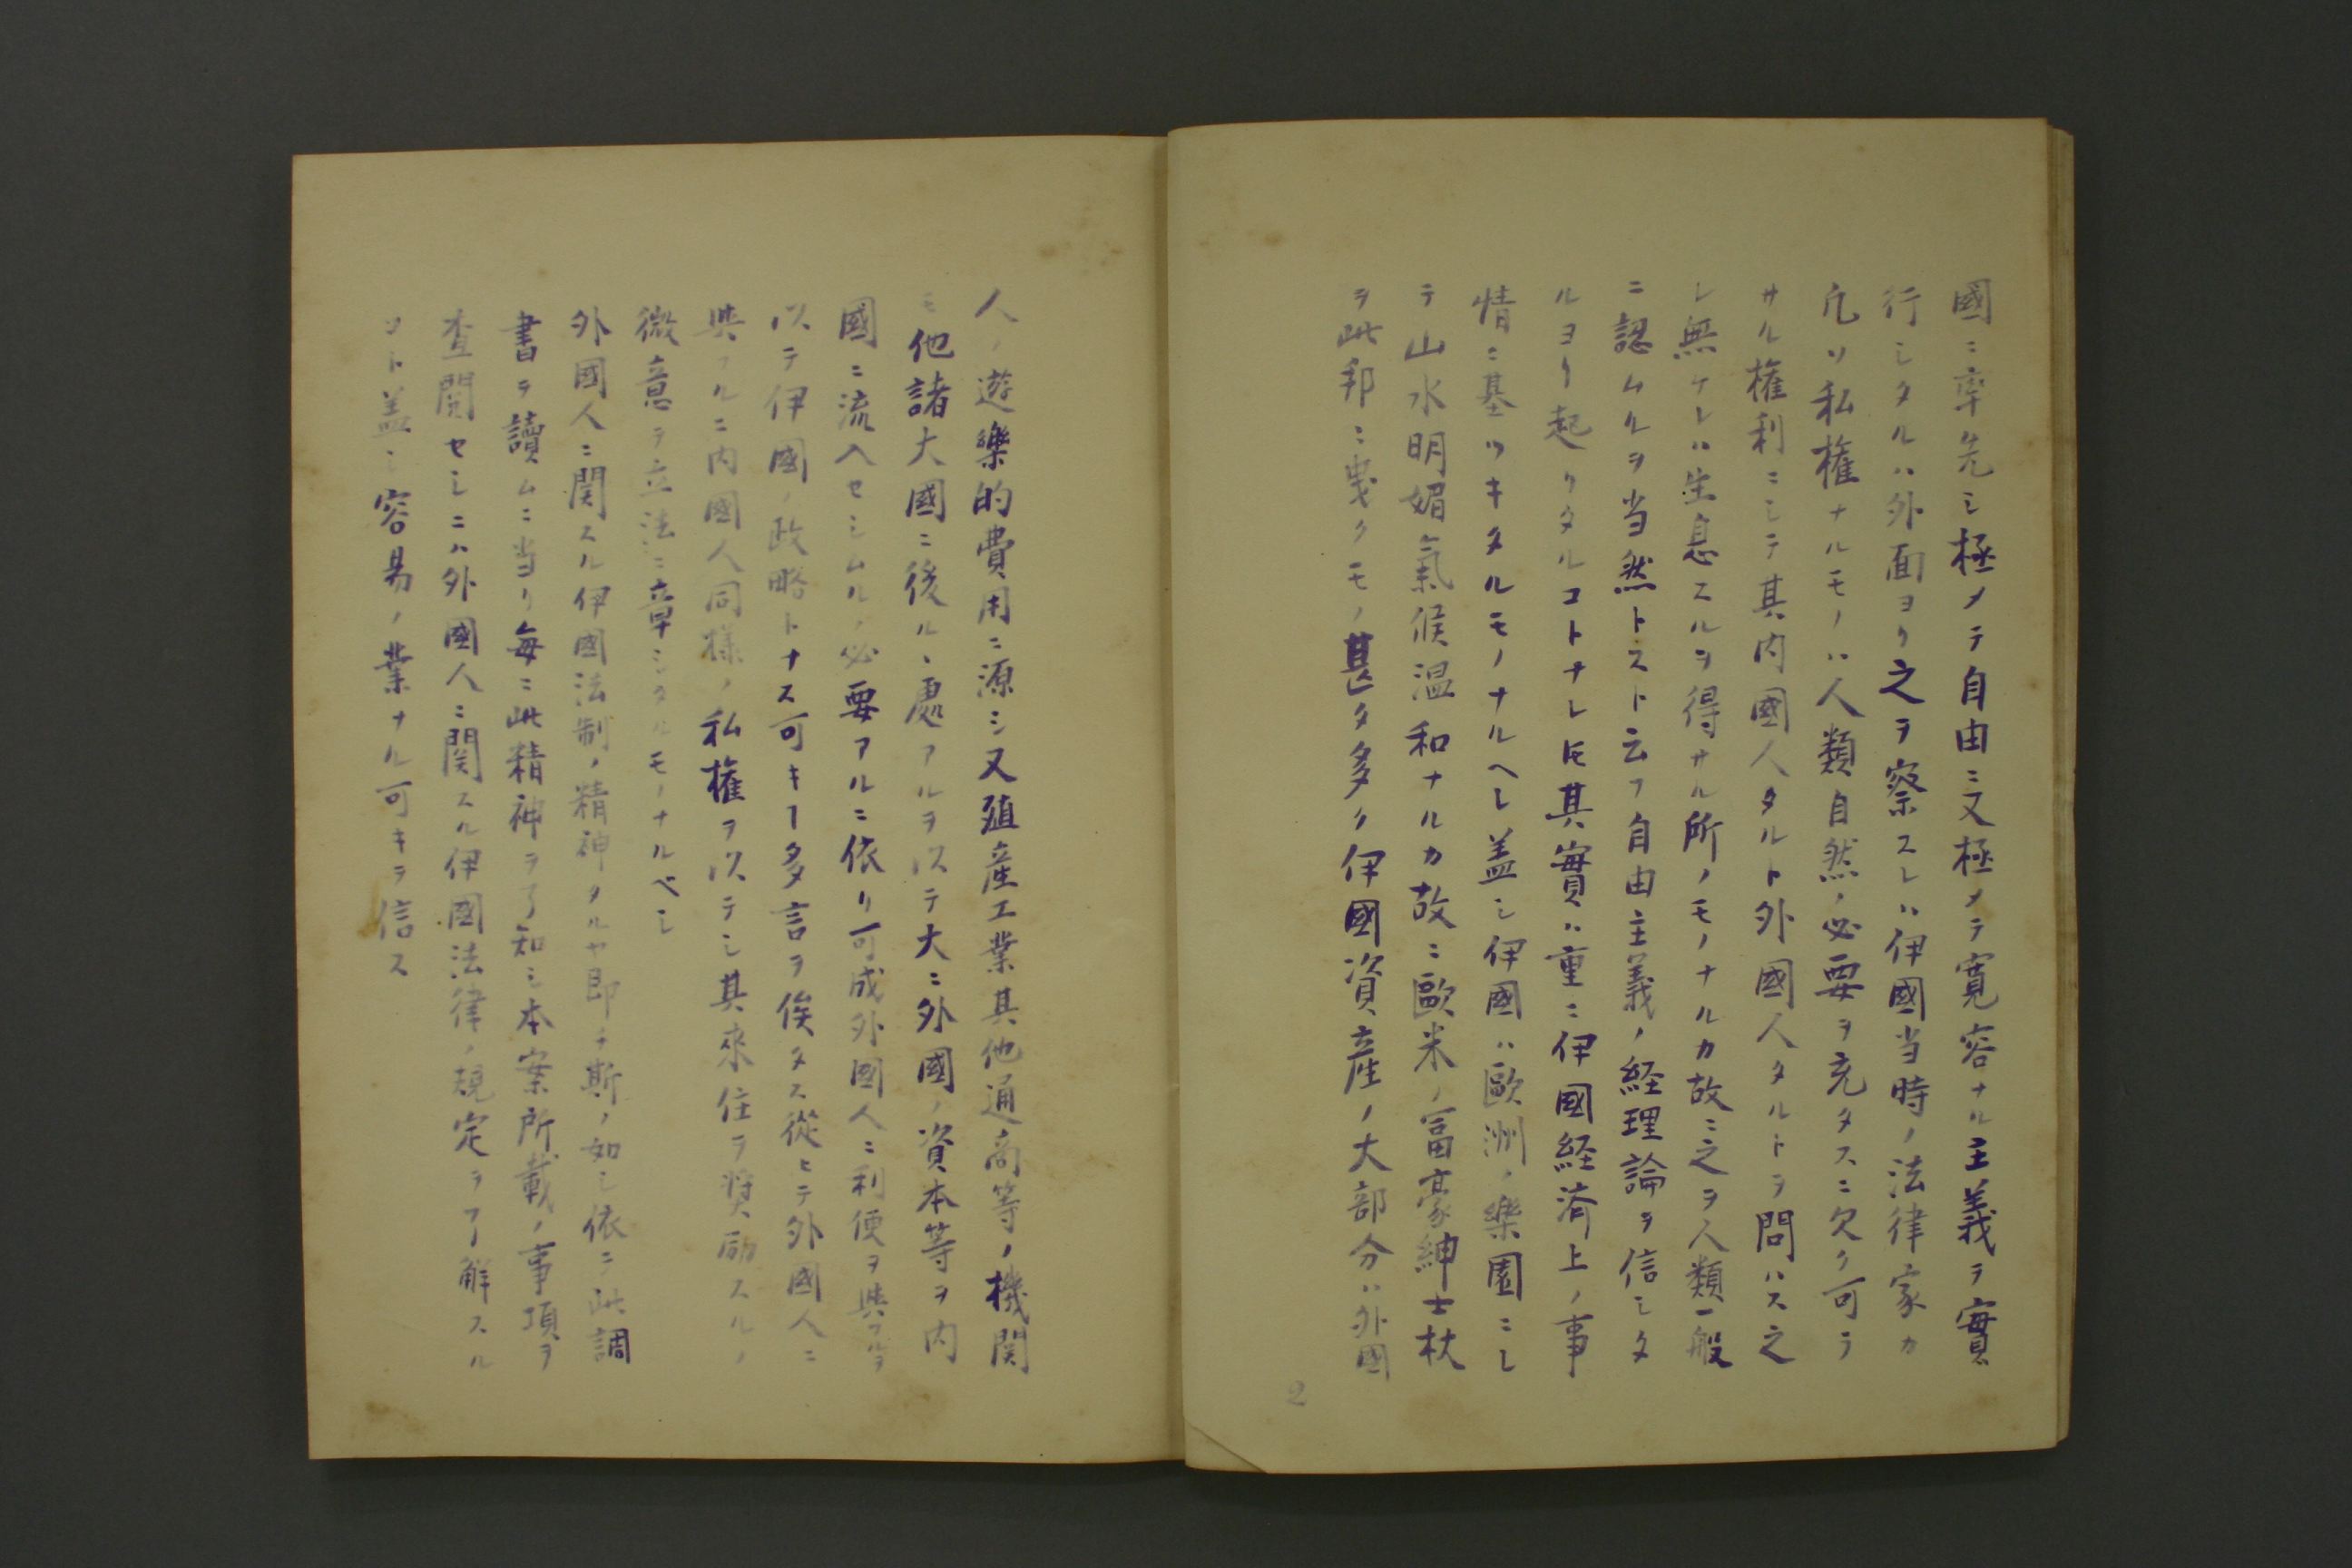 國ニ率先シ極メテ自由ニ又極メテ寛容ナル主義ヲ實
行シタルハ外面ヨリ之ヲ察スレハ伊國当時ノ法律家カ
凢ソ私権ナルモノハ人類自然ノ必要ヲ充タスニ欠ク可ラ
サル権利ニシテ其内國人タルト外國人タルトヲ問ハス之
レ無ケレハ生息スルヲ得サル所ノモノナルカ故ニ之ヲ人類一般
ニ認ムルヲ当然トスト云フ自由主義ノ経理論ヲ信シタ
ルヨリ起リタルコトナレ𪜈其實ハ重ニ伊國経済上ノ事
情ニ基ツキタルモノナルヘシ盖シ伊國ハ歐洲ノ樂園ニシ
テ山水明媚氣候温和ナルカ故ニ歐米ノ富豪紳士杖
ヲ此邦ニ曳クモノ甚タ多ク伊國資産ノ大部分ハ外國
人ノ遊樂的費用ニ源シ又殖産工業其他通商等ノ機関
モ他諸大國ニ後ルヽ處アルヲ以テ大ニ外國ノ資本等ヲ内
國ニ流入セシムルノ必要アルニ依リ可成外國人ニ利便ヲ與フルヲ
以テ伊國ノ政略トナス可キヿ多言ヲ俟タス從ヒテ外國人ニ
與フルニ内國人同様ノ私権ヲ以テシ其來住ヲ奨励スルノ
微意ヲ立法ニ章シタルモノナルベシ
外國人ニ関スル伊國法制ノ精神タルヤ即チ斯ノ如シ依テ此調
書ヲ讀ムニ当リ毎ニ此精神ヲ了知シ本案所載ノ事項ヲ
査閲セシニハ外國人ニ関スル伊國法律ノ規定ヲ了解スル
コト盖シ容易ノ業ナル可キヲ信ス
2